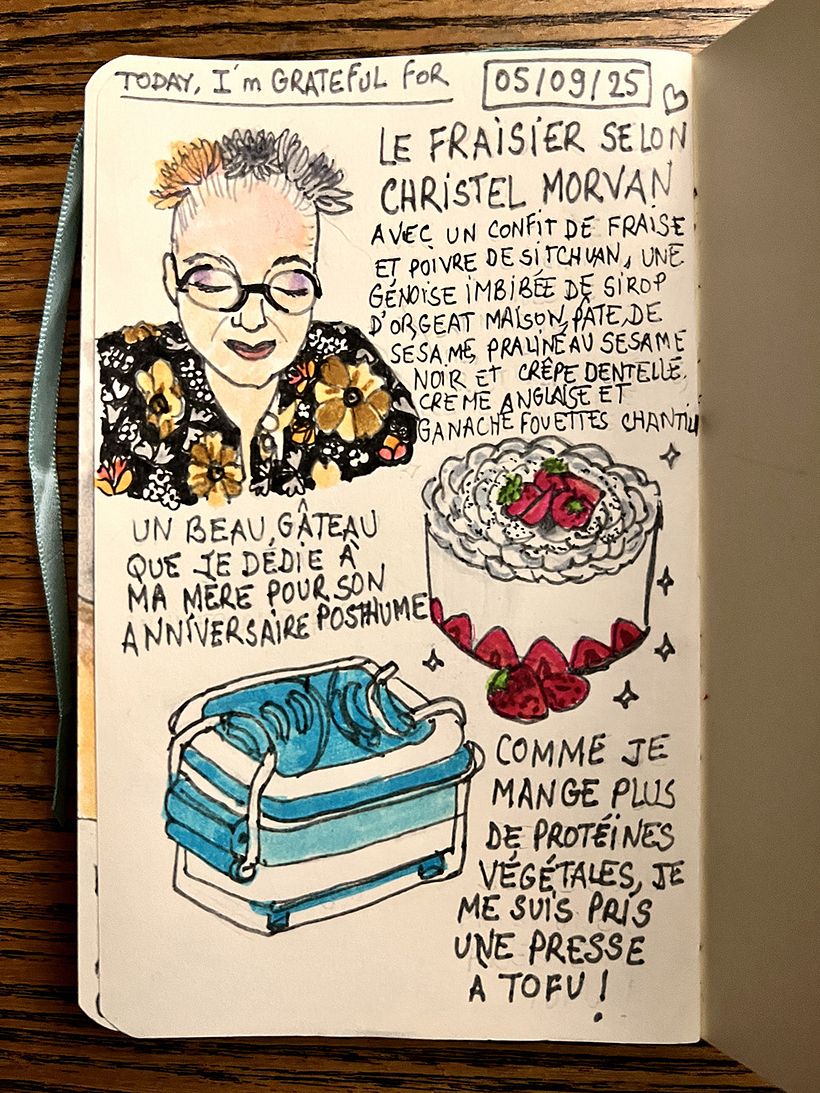 TODAY, I'm GRATEFUL FOR
05/09/25
LE FRAISIER SELON
CHRISTEL MORVAN
AVEC UN CONFIT DE FRAISE
ET POIVRE DE SITCHUAN, UNE
GÉNOISE IMBIBÉE DE SIROP
D'ORGEAT MAISON, PÂTE DE
SESAME, PRALINÉ AU SESAME
NOIR ET CRÊPE DENTELLE,
CREME ANGLAISE ET
GANACHE FOUETTES CHANTILLI
UN BEAU GÂTEAU
QUE JE DÉDIE À
MA MÈRE POUR SON
ANNIVERSAIRE POSTHUME
COMME JE
MANGE PLUS
DE PROTÉINES
VÉGÉTALES, JE
ME SUIS PRIS
UNE PRESSE
A TOFU !